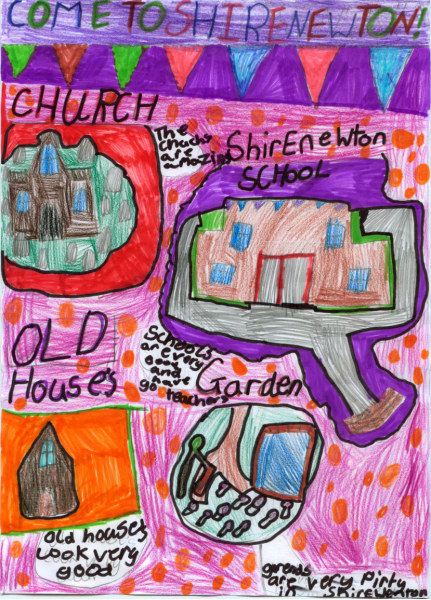 COME TO SHIRENEWTON!
CHURCH
The
are
amazing
ShirEnewton
SCHOOL
OLD
House's
Schools
are very
good
and
have
go teachers
Garden
old house's
look very
good
garends
are very Pirty
in Shirewenton